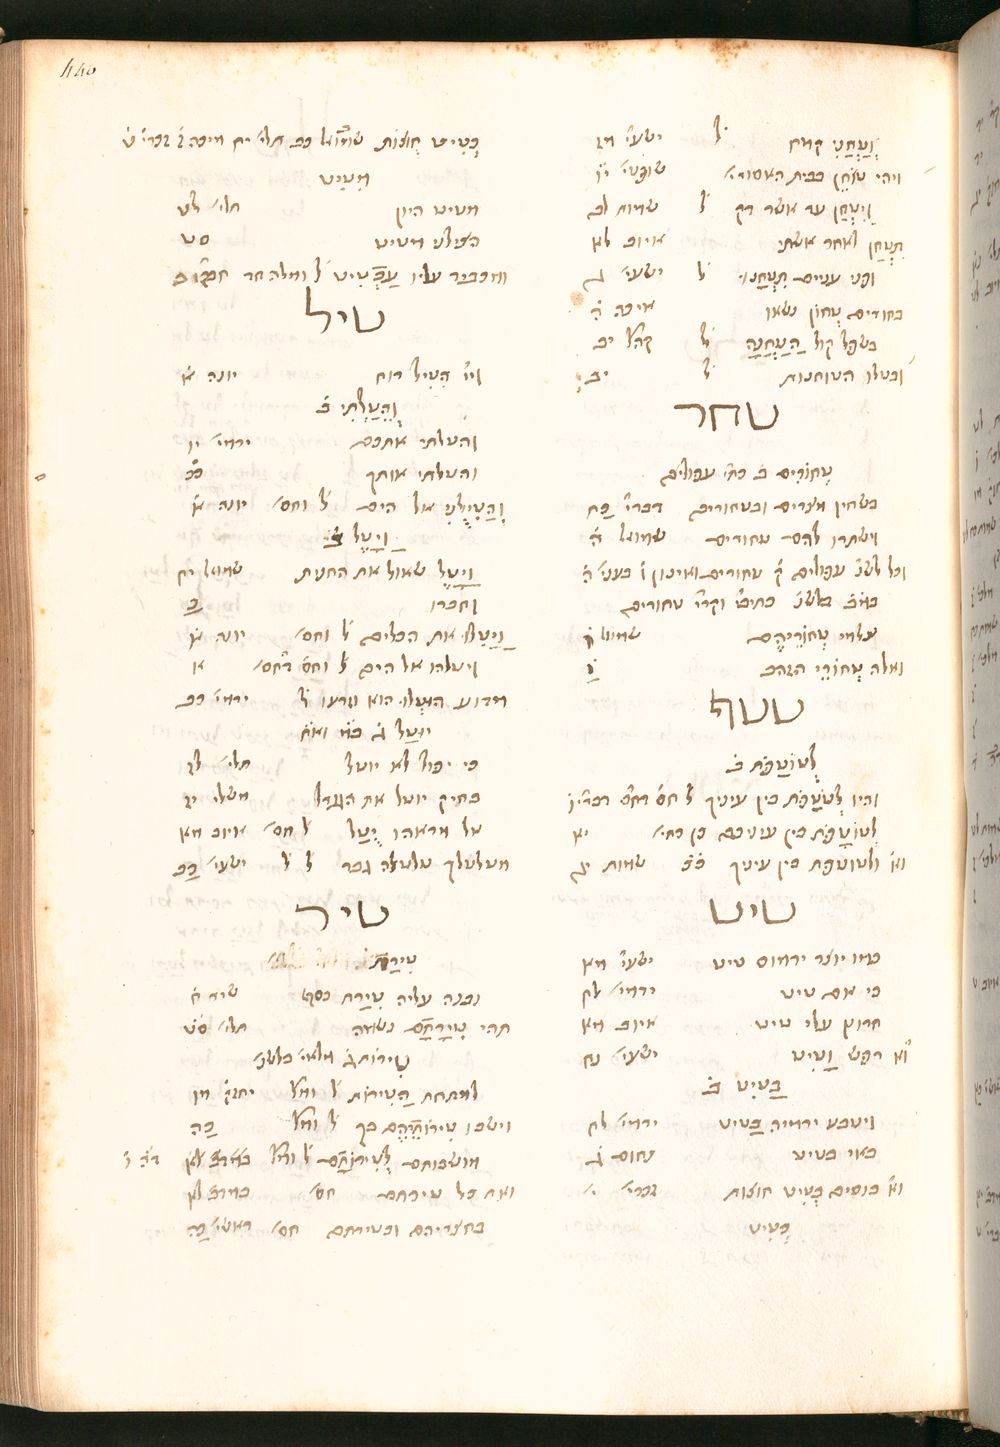 440
וַטַחֲנִי קמח ל ישעי מז
ויהי טוֹחֵן בבית האסורי׳ שופטי׳ יו
וַיִטְחַן עד אשר דק ל שמות לב
תִטְחַן לאחר אשתי איוב לא
ופני עניים תִטְחַנוּ ל ישעי׳ ג
בחורים טְחוֹן נשאו איכה ה
בשפל קול הַטַחֲנָה ל קהל יב
ובטלו הטוחנות ל יב
טחר
טְחוֹרִים ב כתי עפולים
בשחין מצרים ובטחורים דברי כח
וישתרו להם טחורים שמואל ה
וכל לשנ עפולים ק טחורים ואינון ו בעני׳ ה
כתיבי וקרי טחורים
צלמי טְחוֹרֵיהֶם שמואל ו
ואלה טְחוֹרֵי הזהב ו
טטף
לְטוֹטָפֹת ב
והיו לְטֹטָפֹת בין עיניך ל חס דברי ו
לְטוֹטָפֹת בין עיניכם יא
וא ולטוטפת בין עיניך שמות יג
טיט
כמו יוצר ירמוס טיט ישעי מא
כי אם טיט ירמי׳ לח
חרוץ עלי טיט איוב מא
וא רפש וָטִיט ישעי׳ נז
בַטִיט ב
ויטבע ירמיה בַטיט ירמי׳ לח
באי בטיט נחום ג
וא בוסים בְטִיט חוצות זכרי׳ י
בְטִיט
בְטִיט חֻצוֹת שמואל כב תלי׳ יח מיכה ז זכרי ט
מִטִיט
מטיט היון תלי׳ לט
הצילני מטיט סט
ומכביד עליו עַבְטִיט ל ומלה חד חבקוק ב
טיל
ויי הֵטִיל רוח יונה א
וְהֵטַלְתִי ב
והטלתי אתכם ירמי׳ יו
והטלתי אותך כב
וַהֲטִילֻנִי אל הים ל וחס׳ יונה א
וַיָטֶל ב
וַיָטֶל שאול את החנית שמואל יח
וחברו כ
וַיָטִלוּ את הכלים ל וחס׳ יונה א
ויטלהו אל הים ל וחס א
מדוע הוּטְלוּ הוא וזרעו ל ירמי׳ כב
יוטל ג
כי יפול לא יוטל תלי׳ לז
בחיק יוטל את הגורל משלי יו
אל מראהו יֻטָל ל חס׳ איוב מא
מטלטלך טלטלה גבר ל ל ישעי׳ כב
טיר
טִירַת
נבנה עליה טִירַת כסף שיר ח
תהי טִירָתָם נשמה תלי׳ סט
טִירוֹת
לחומת הַטִירוֹת ל ומל יחזק מו
וישבו טִירוֹתֵיהֶם בך ל ומל כה
מושבותם לְטִירוֹתָם ל ומל
ואת כל טירתם חס׳ במדב לא
בחצריהם ובטירתם חס׳ ראשי׳ כה